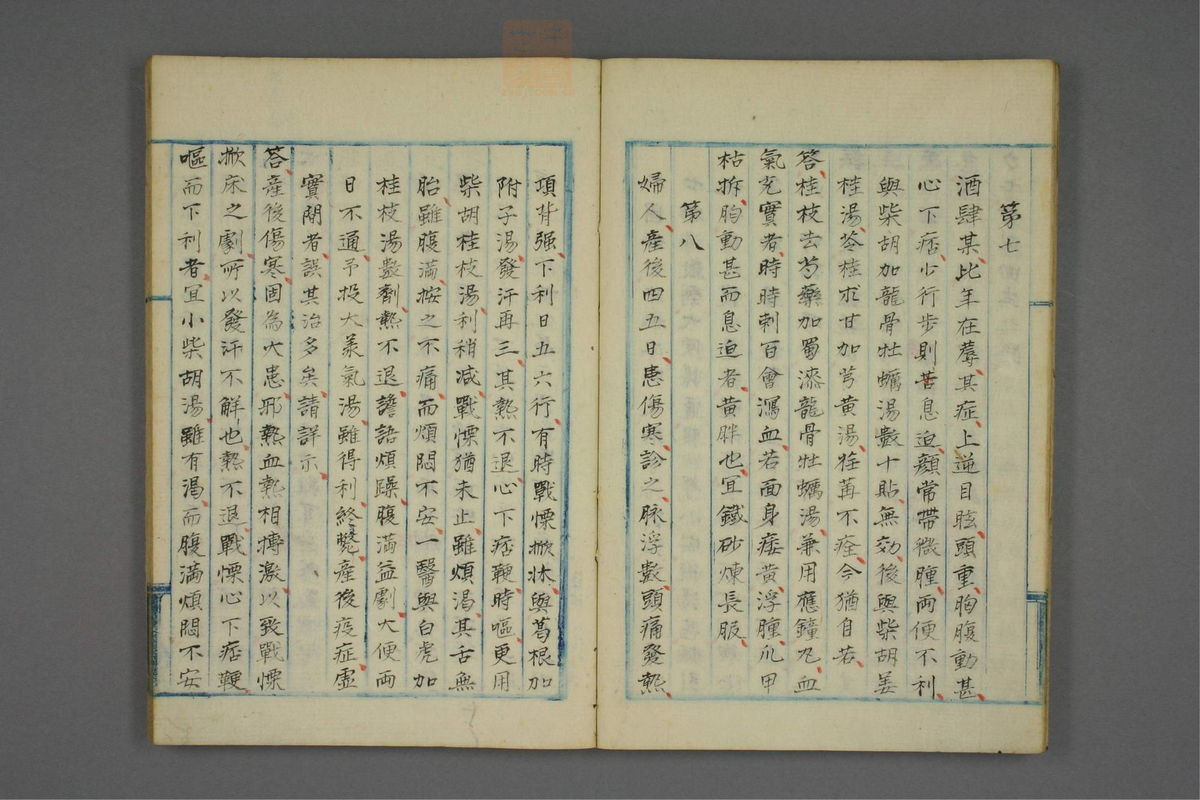 第七
酒肆某、比年在蓐、其症、上逆目眩、頭重、胸腹動甚、
心下痞、少行步則苦息迫、顔常帶微腫、両便不利、
與柴胡加龍骨牡蠣湯數十貼、無効、後與柴胡姜
桂湯、苓桂朮甘加芎黄湯、荏苒不痊、今猶自若、
答、桂枝去芍藥加蜀漆龍骨牡蠣湯、兼用應鐘丸、血
氣充實者、時時刺百會瀉血、若面身痿黄、浮腫、爪甲
枯拆、胸動甚而息迫者、黄胖也、冝鐵砂煉長服、
第八
婦人、産後四五日、患傷寒、診之、脉浮數、頭痛發熱、
項背强、下利日五六行、有時戰慄撼牀、與葛根加
附子湯、發汗再三、其熱不退、心下痞鞕、時嘔、更用
柴胡桂枝湯、利稍减、戰慄猶未止、雖煩渇、其舌無
胎、雖腹満、按之不痛、而煩悶不安、一醫與白虎加
桂枝湯數劑、熱不退、譫語煩躁、腹満益劇、大便両
日不通、予投大羕氣湯、雖得利、終斃、産後疫症、虚
實閒者、誤其治多矣、請詳示
答、産後傷寒、固為大患、邪熱血熱相搏激、以致戰慄
撼床之劇、所以發汗不解也、熱不退、戰慄、心下痞鞕、
嘔而下利者、冝小柴胡湯、雖有渇、而腹満煩悶不安